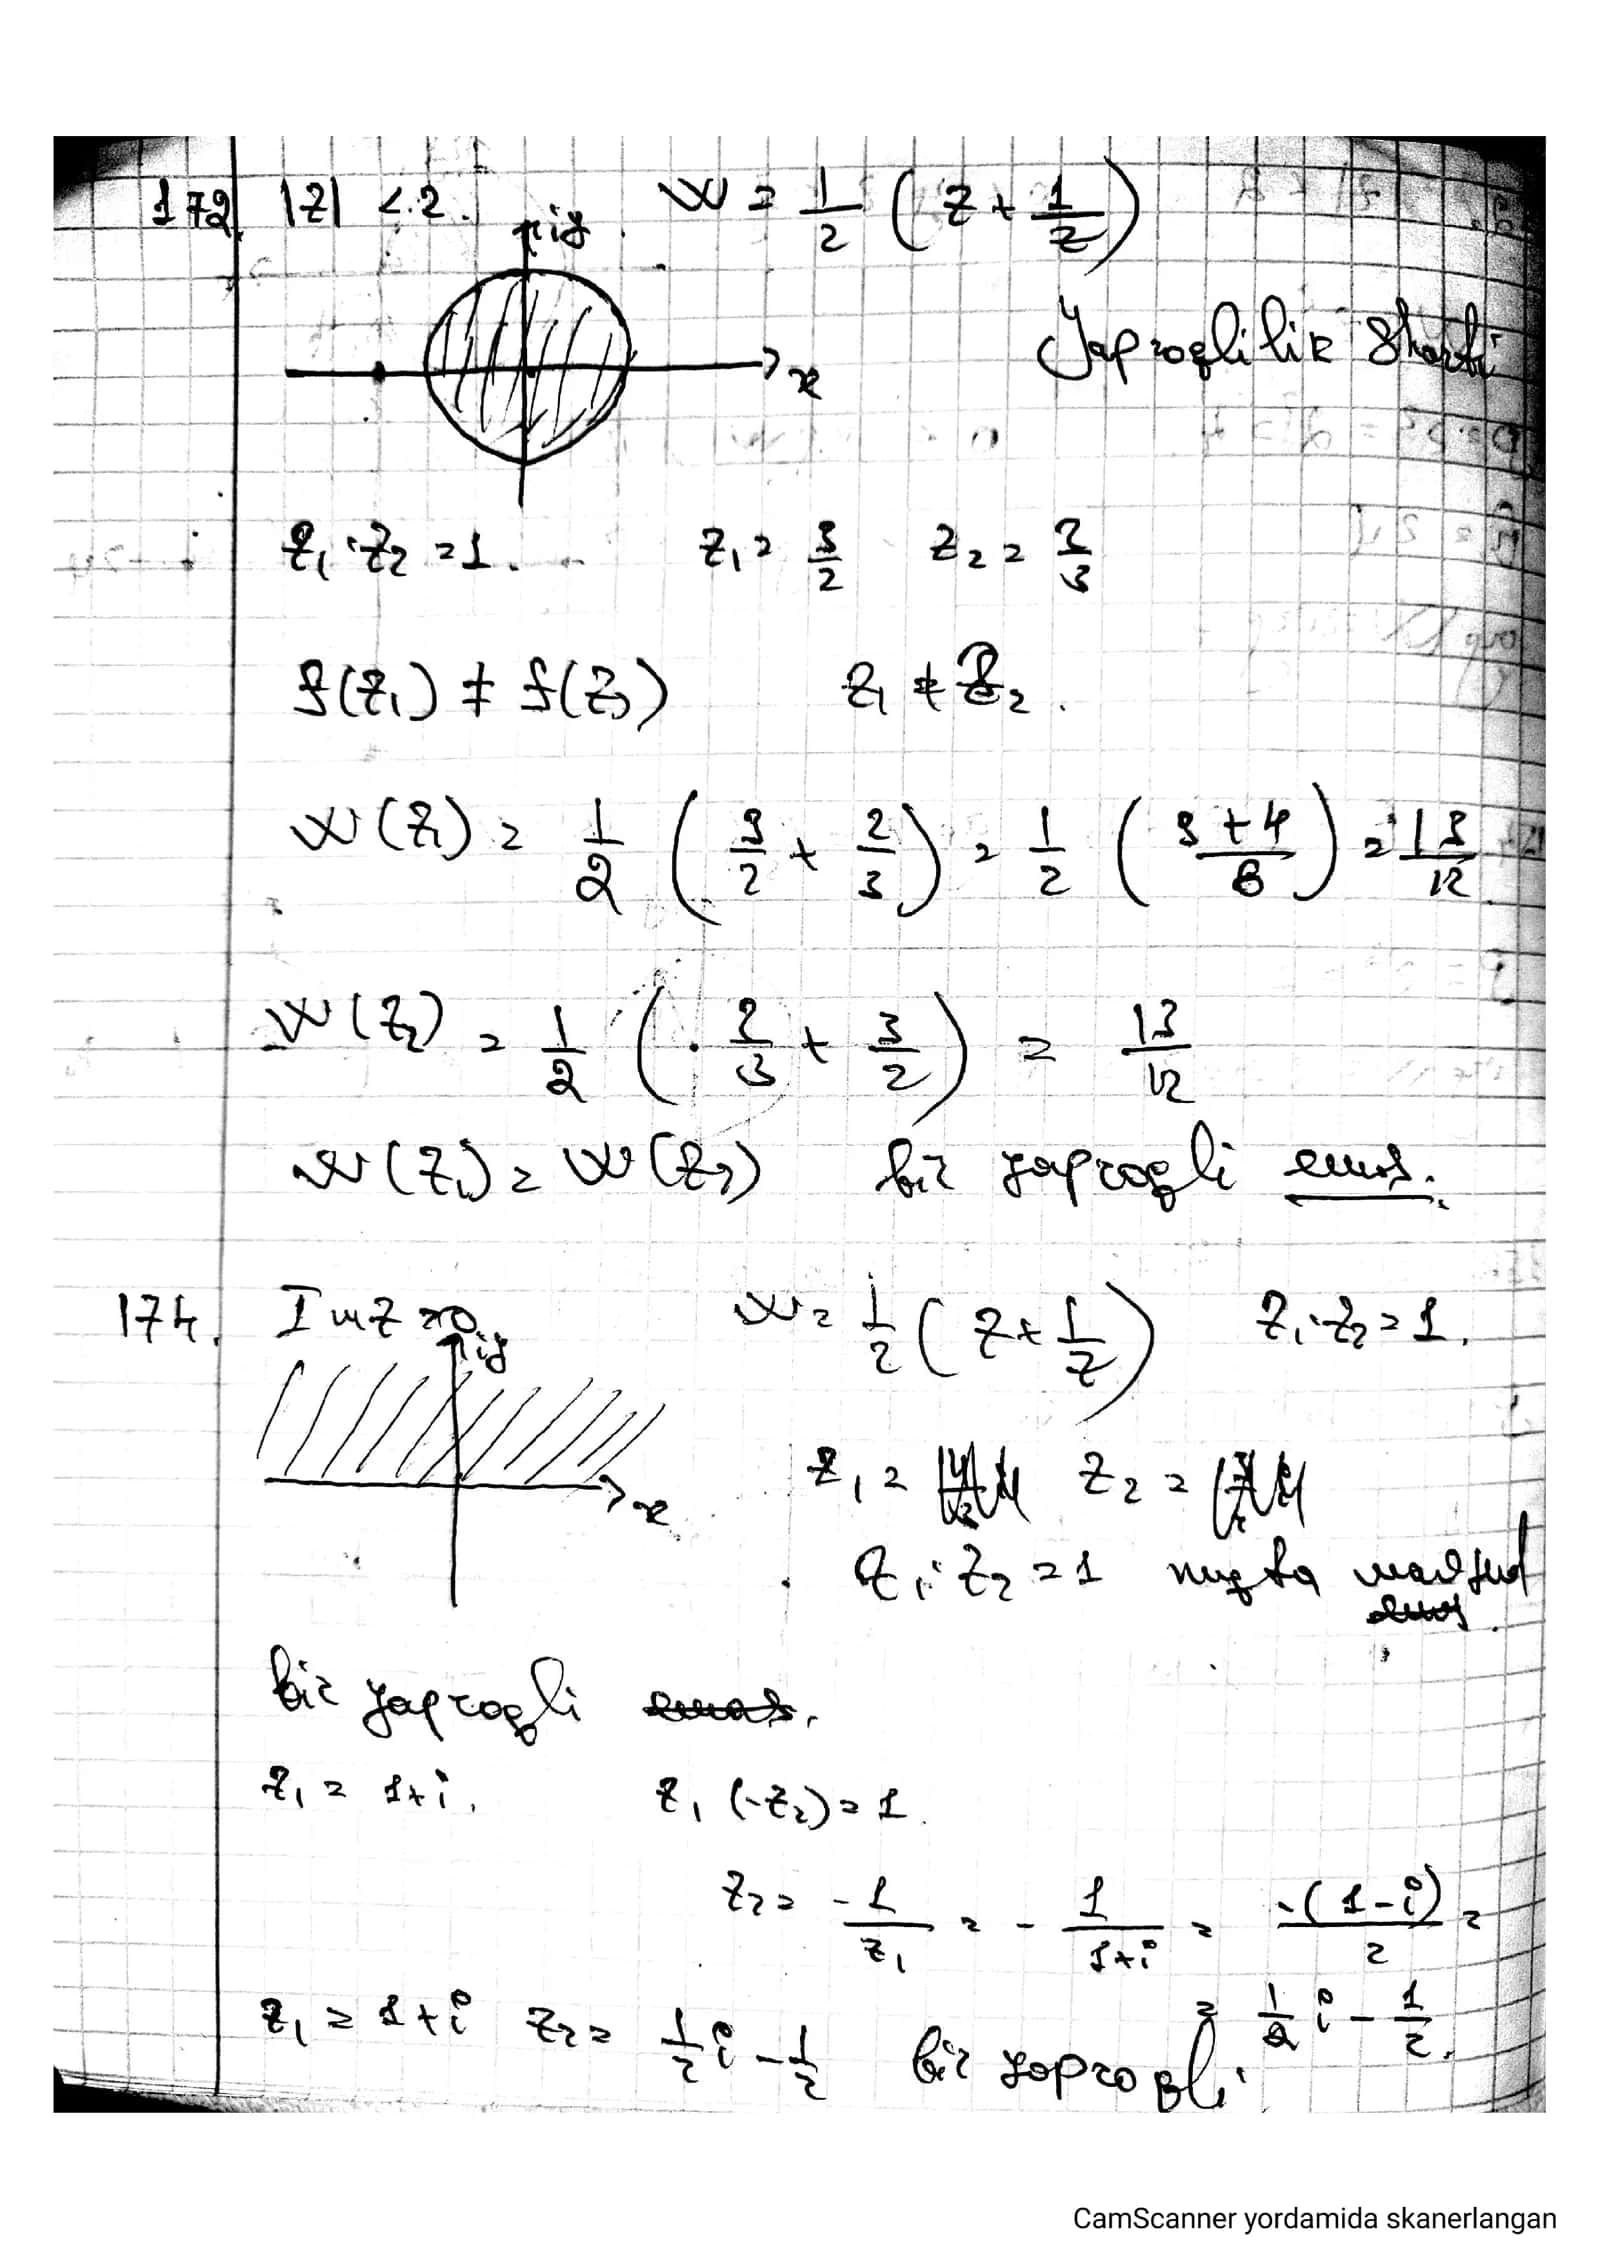 172. |z| < 2. w = 1/2 (z + 1/z)
iy
x
Yaproqlilik sharti
z₁·z₂ = 1. z₁ = 3/2 z₂ = 2/3
f(z₁) ≠ f(z₂) z₁ ≠ z₂.
w(z₁) = 1/2 (3/2 + 2/3) = 1/2 (9+4/6) = 13/12
w(z₂) = 1/2 (2/3 + 3/2) = 13/12
w(z₁) = w(z₂) bir yaproqli emas.
174. Im z > 0 w = 1/2 (z + 1/z) z₁·z₂ = 1.
iy
x
z₁ = z₂ =
z₁·z₂ = 1 nuqta mavjud emas.
bir yaproqli emas.
z₁ = 1+i. z₁(-z₂) = 1.
z₂ = -1/z₁ = - 1/1+i = -(1-i)/2 =
= 1/2 i - 1/2.
z₁ = 1+i z₂ = 1/2 i - 1/2 bir yaproqli
CamScanner yordamida skanerlangan